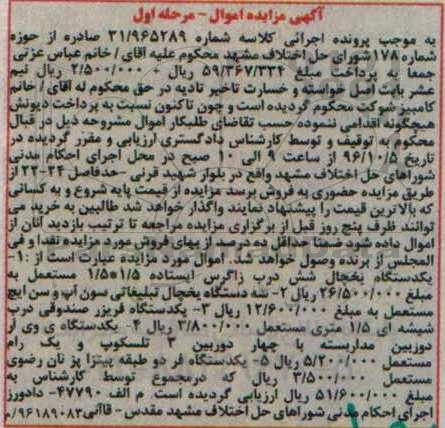 آگهی مزایده اموال - مرحله اول
به موجب پرونده اجرائی کلاسه شماره ۳۱/۹۶۵۲۸۹ صادره از حوزه
شماره ۱۷۸ شورای حل اختلاف مشهد محکوم علیه آقای / خانم عباس عزتی
جمعا به پرداخت مبلغ ۵۹/۳۶۷/۳۳۴ ریال + ۲/۵۰۰/۰۰۰ ریال نیم
عشر بابت اصل خواسته و خسارت تاخیر تادیه در حق محکوم له آقای / خانم
کامبیز شوکت محکوم گردیده است و چون تاکنون نسبت به پرداخت دیونش
هیچگونه اقدامی ننموده حسب تقاضای طلبکار اموال مشروحه ذیل در قبال
محکوم به توقیف و توسط کارشناس دادگستری ارزیابی و مقرر گردیده در
تاریخ ۹۶/۱۰/۵ از ساعت ۹ الی ۱۰ صبح در محل اجرای احکام مدنی
شوراهای حل اختلاف مشهد واقع در بلوار شهید قرنی -حدفاصل ۲۴-۲۲ از
طریق مزایده حضوری به فروش برسد مزایده از قیمت پایه شروع و به کسانی
که بالاترین قیمت را پیشنهاد نمایند واگذار خواهد شد طالبین به خرید می
توانند ظرف پنج روز قبل از برگزاری مزایده مراجعه تا ترتیب بازدید آنان از
اموال داده شود ضمنا حداقل ده درصد از بهای فروش مورد مزایده نقدا و فی
المجلس از برنده وصول خواهد شد. اموال مورد مزایده عبارت است از: ۱-
یکدستگاه یخچال شش درب زاگرس ایستاده ۱/۵*۱/۵ مستعمل به
مبلغ ۲۶/۵۰۰/۰۰۰ ریال ۲- سه دستگاه یخچال تبلیغاتی سون آپ و سن ایچ
مستعمل به مبلغ ۱۲/۶۰۰/۰۰۰ ریال ۳- یکدستگاه فریزر صندوقی درب
شیشه ای ۱/۵ متری مستعمل ۳/۸۰۰/۰۰۰ ریال ۴- یکدستگاه وی آر
دوربین مداربسته با چهار دوربین ۳ تلسکوپ و یک رام
مستعمل ۵/۲۰۰/۰۰۰ ریال ۵- یکدستگاه فر دو طبقه پیتزا پز نان رضوی
مستعمل ۳/۵۰۰/۰۰۰ ریال که درمجموع توسط کارشناس به
مبلغ ۵۱/۶۰۰/۰۰۰ ریال ارزیابی گردیده است. م الف ۴۷۷۹۰- دادورز
اجرای احکام مدنی شوراهای حل اختلاف مشهد مقدس - قاآنی ۹۶۱۸۹۰۸۳/م